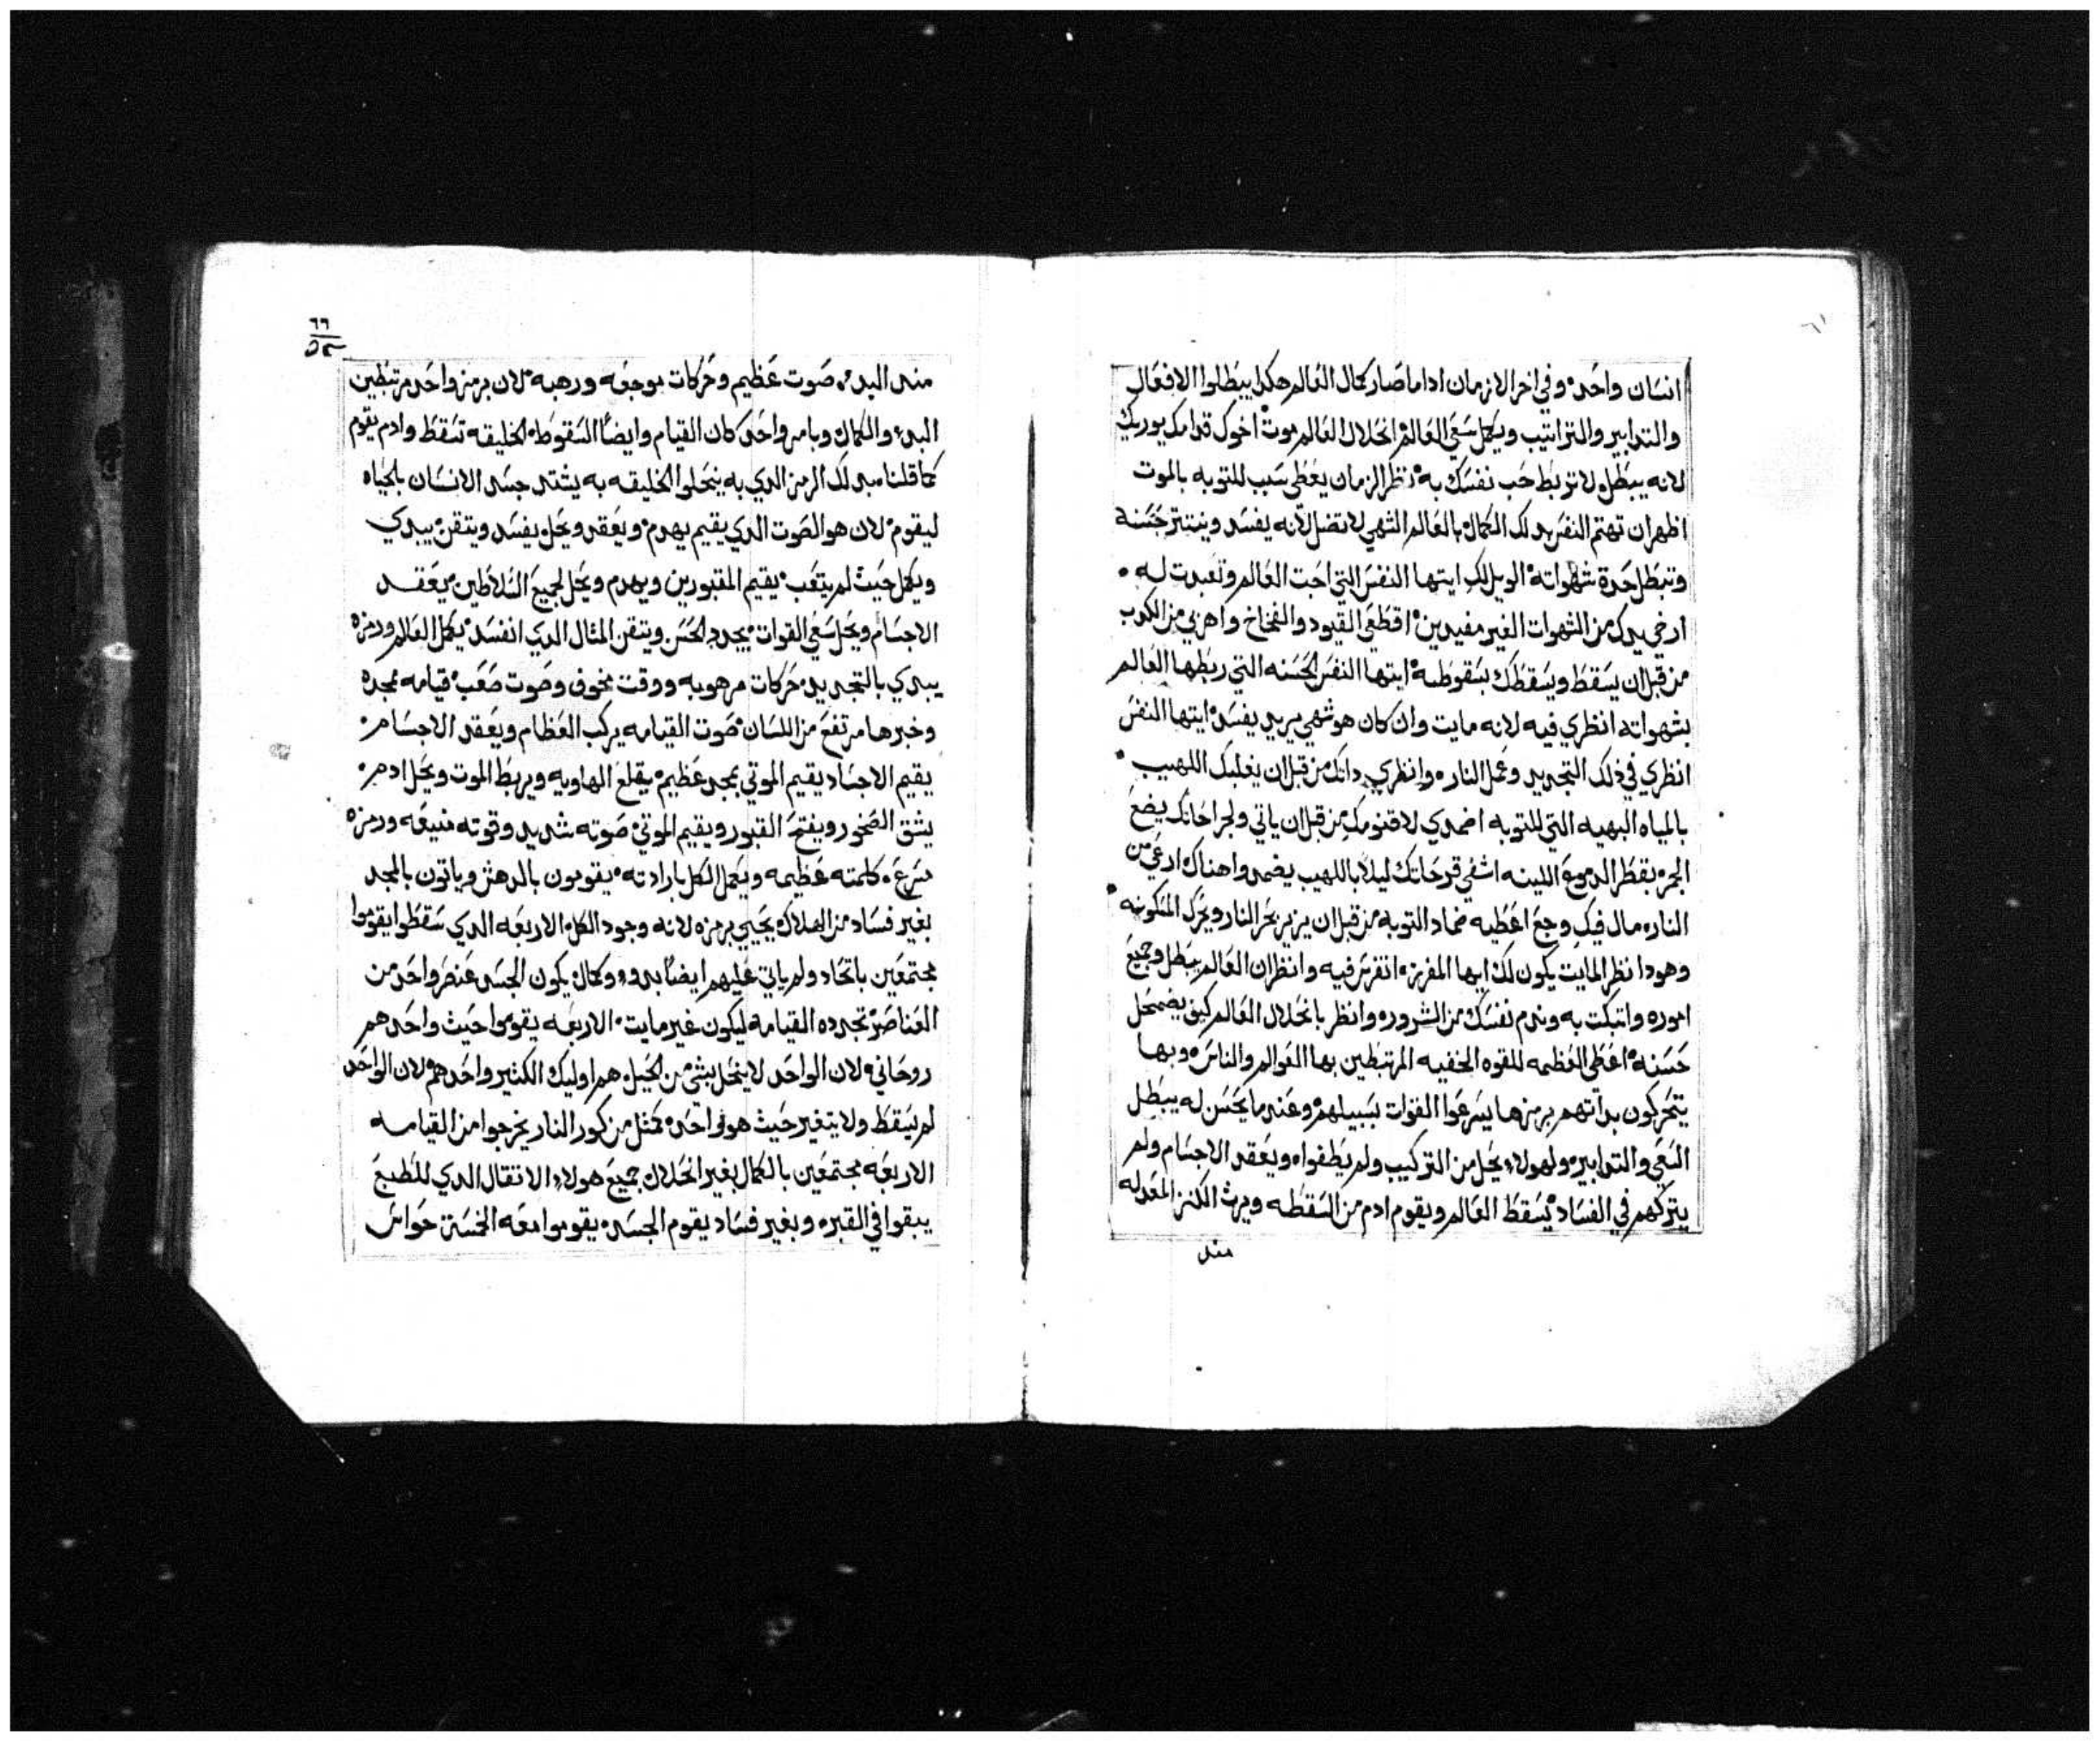 انسان واحد ۰ وفي اخر الازمان اداما صار كمال العالم هكدا يبطلوا الافعال
والتدابير والتراتيب ويكمل سعي العالم ۰ انحلال العالم موت ۰ اخوك قدامك يوريك
لانه يبطل ولا تربط حب نفسك به ۰ نظر الزمان يعطي سبب للتوبه بالموت
اظهر ان تهتم النفس بدلك الكمال ۰ بالعالم الشهي لا تضل لانه يفسد وينتتر حسنه
وتبطل حدة شهواته ۰ الويل لك ايتها النفس التي احبت العالم وتعبدت له ۰
ارخي يدك من الشهوات الغير مفيدين ۰ اقطعي القيود والفخاخ واهربي من الكدب
من قبل ان يسقط ويسقطك بسقوطه ۰ ايتها النفس الحسنه التي ربطها العالم
بشهواته انظري فيه لانه مايت وان كان هو شهي يريد يفسد ۰ ايتها النفس
انظري في ذلك التجديد وعمل النار ۰ وانظري داتك من قبل ان يغلبك اللهيب ۰
بالمياه البهيه التي للتوبه اضمدي لاقنومك من قبل ان ياتي ولجراحاتك يضع
الجمر ۰ بقطر الدموع اللينه اشفي قرحاتك ليلا باللهيب يضمدوا هناك ۰ ادعي من
النار ۰ مال فيك وجع اعطيه ضماد التوبه من قبل ان يزيز بحر النار ويحرك المسكونه ۰
وهودا نظر المايت يكون لك ايها المفرز ۰ اتفرس فيه وانظر ان العالم يبطل وجميع
اموره واتبكت به وندم نفسك من الشرور ۰ وانظر بانحلال العالم كيف يضمحل
حسنه ۰ اعطي العظمه للقوه الخفيه المرتبطين بها العوالم والناس ۰ وبها
يتحركون بداتهم برمزها يسرعوا القوات بسبيلهم ۰ وعند ما يحسن له يبطل
السعي والتدابير ۰ ولهولاء يحل من التركيب ولم يطفوا ۰ ويعقد الاجسام ولم
يتركهم في الفساد ۰ يسقط العالم ويقوم ادم من السقطه ويرث الكنز المعد له
مند
٦٦
مند البدء ۰ صوت عظيم وحركات موجعه ورهبه ۰ لان برمز واحد مرتبطين
البدء والكمال وبامر واحد كان القيام وايضا السقوط ۰ الخليقه تسقط وادم يقوم
كما قلنا ۰ بدلك الرمز الدي به ينحلوا الخليقه به يشتد جسد الانسان بالحياه
ليقوم ۰ لان هو الصوت الدي يقيم يهدم ۰ ويعقد ويحل ۰ يفسد ويتقن ۰ يبدي
ويكمل حيث لم يتعب ۰ يقيم المقبورين ويهدم ويحل لجميع السلاطين ۰ يعقد
الاجسام ويحل سعي القوات ۰ يجدد الحسن ويتقن المثال الدي انفسد ۰ يكمل العالم ورمزه
يبدي بالتجديد ۰ حركات مرهوبه ووقت مخوف وصوت صعب ۰ قيامه ممجده
وخبرها مرتفع من اللسان ۰ صوت القيامه يركب العظام ويعقد الاجسام ۰
يقيم الاجساد يقيم الموتي بمجد عظيم ۰ يقلع الهاويه ويربط الموت ويحل ادم ۰
يشق الصخور ويفتح القبور ويقيم الموتي ۰ صوته شديد وقوته منيعه ورمزه
سرع ۰ كلمته عظيمه ويكمل الكل بارادته ۰ يقومون بالدهش وياتون بالمجد
بغير فساد من الهلاك ۰ يحيي برمزه لانه وجود الكل ۰ الاربعه الدي سقطوا يقوموا
مجتمعين باتحاد ولم ياتي عليهم ايضا بدو ۰ وكمال ۰ يكون الجسد عنصر واحد من
العناصر ۰ تجدده القيامه ليكون غير مايت ۰ الاربعه يقوموا حيث واحد هم
روحاني ۰ لان الواحد لا ينحل بشي من الحيل ۰ هم اوليك الكثير واحد هم ۰ لان الواحد
لم يسقط ولا يتغير حيث هو واحد ۰ كمثل من كور النار يخرجوا من القيامه
الاربعه مجتمعين بالكمال بغير انحلال ۰ جميع هولاء الانتقال الدي للطبع
يبقوا في القبر ۰ وبغير فساد يقوم الجسد ۰ يقوموا معه الخمسة حواس